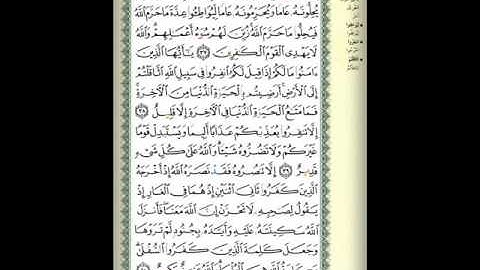 يُحِلُّونَهُۥ عَامًا وَيُحَرِّمُونَهُۥ عَامًا لِّيُوَاطِـُٔوا۟ عِدَّةَ مَا حَرَّمَ ٱللَّهُ
فَيُحِلُّوا۟ مَا حَرَّمَ ٱللَّهُ زُيِّنَ لَهُمْ سُوٓءُ أَعْمَٰلِهِمْ وَٱللَّهُ
لَا يَهْدِى ٱلْقَوْمَ ٱلْكَٰفِرِينَ ٣٧ يَٰٓأَيُّهَا ٱلَّذِينَ
ءَامَنُوا۟ مَا لَكُمْ إِذَا قِيلَ لَكُمُ ٱنفِرُوا۟ فِى سَبِيلِ ٱللَّهِ ٱثَّاقَلْتُمْ
إِلَى ٱلْأَرْضِ أَرَضِيتُم بِٱلْحَيَوٰةِ ٱلدُّنْيَا مِنَ ٱلْءَاخِرَةِ
فَمَا مَتَٰعُ ٱلْحَيَوٰةِ ٱلدُّنْيَا فِى ٱلْءَاخِرَةِ إِلَّا قَلِيلٌ ٣٨
إِلَّا تَنفِرُوا۟ يُعَذِّبْكُمْ عَذَابًا أَلِيمًا وَيَسْتَبْدِلْ قَوْمًا
غَيْرَكُمْ وَلَا تَضُرُّوهُ شَيْـًٔا وَٱللَّهُ عَلَىٰ كُلِّ شَىْءٍ
قَدِيرٌ ٣٩ إِلَّا تَنصُرُوهُ فَقَدْ نَصَرَهُ ٱللَّهُ إِذْ أَخْرَجَهُ
ٱلَّذِينَ كَفَرُوا۟ ثَانِىَ ٱثْنَيْنِ إِذْ هُمَا فِى ٱلْغَارِ إِذْ
يَقُولُ لِصَٰحِبِهِۦ لَا تَحْزَنْ إِنَّ ٱللَّهَ مَعَنَا فَأَنزَلَ
ٱللَّهُ سَكِينَتَهُۥ عَلَيْهِ وَأَيَّدَهُۥ بِجُنُودٍ لَّمْ تَرَوْهَا
وَجَعَلَ كَلِمَةَ ٱلَّذِينَ كَفَرُوا۟ ٱلسُّفْلَىٰ